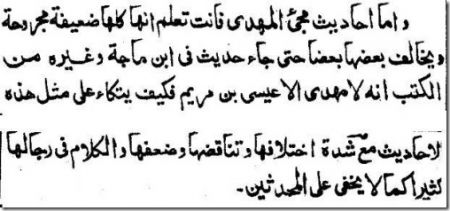 واما احاديث مجئ المهدى فانت تعلم انها كلها ضعيفة مجروحة
ويخالف بعضها بعضا حتى جاء حديث فى ابن ماجة وغيره من
الكتب انه لا مهدى الا عيسى بن مريم فكيف يتكاء على مثل هذه
لاحاديث مع شدة اختلافها وتناقضها وضعفها والكلام فى رجالها
كثير كما لا يخفى على المحدثين۔